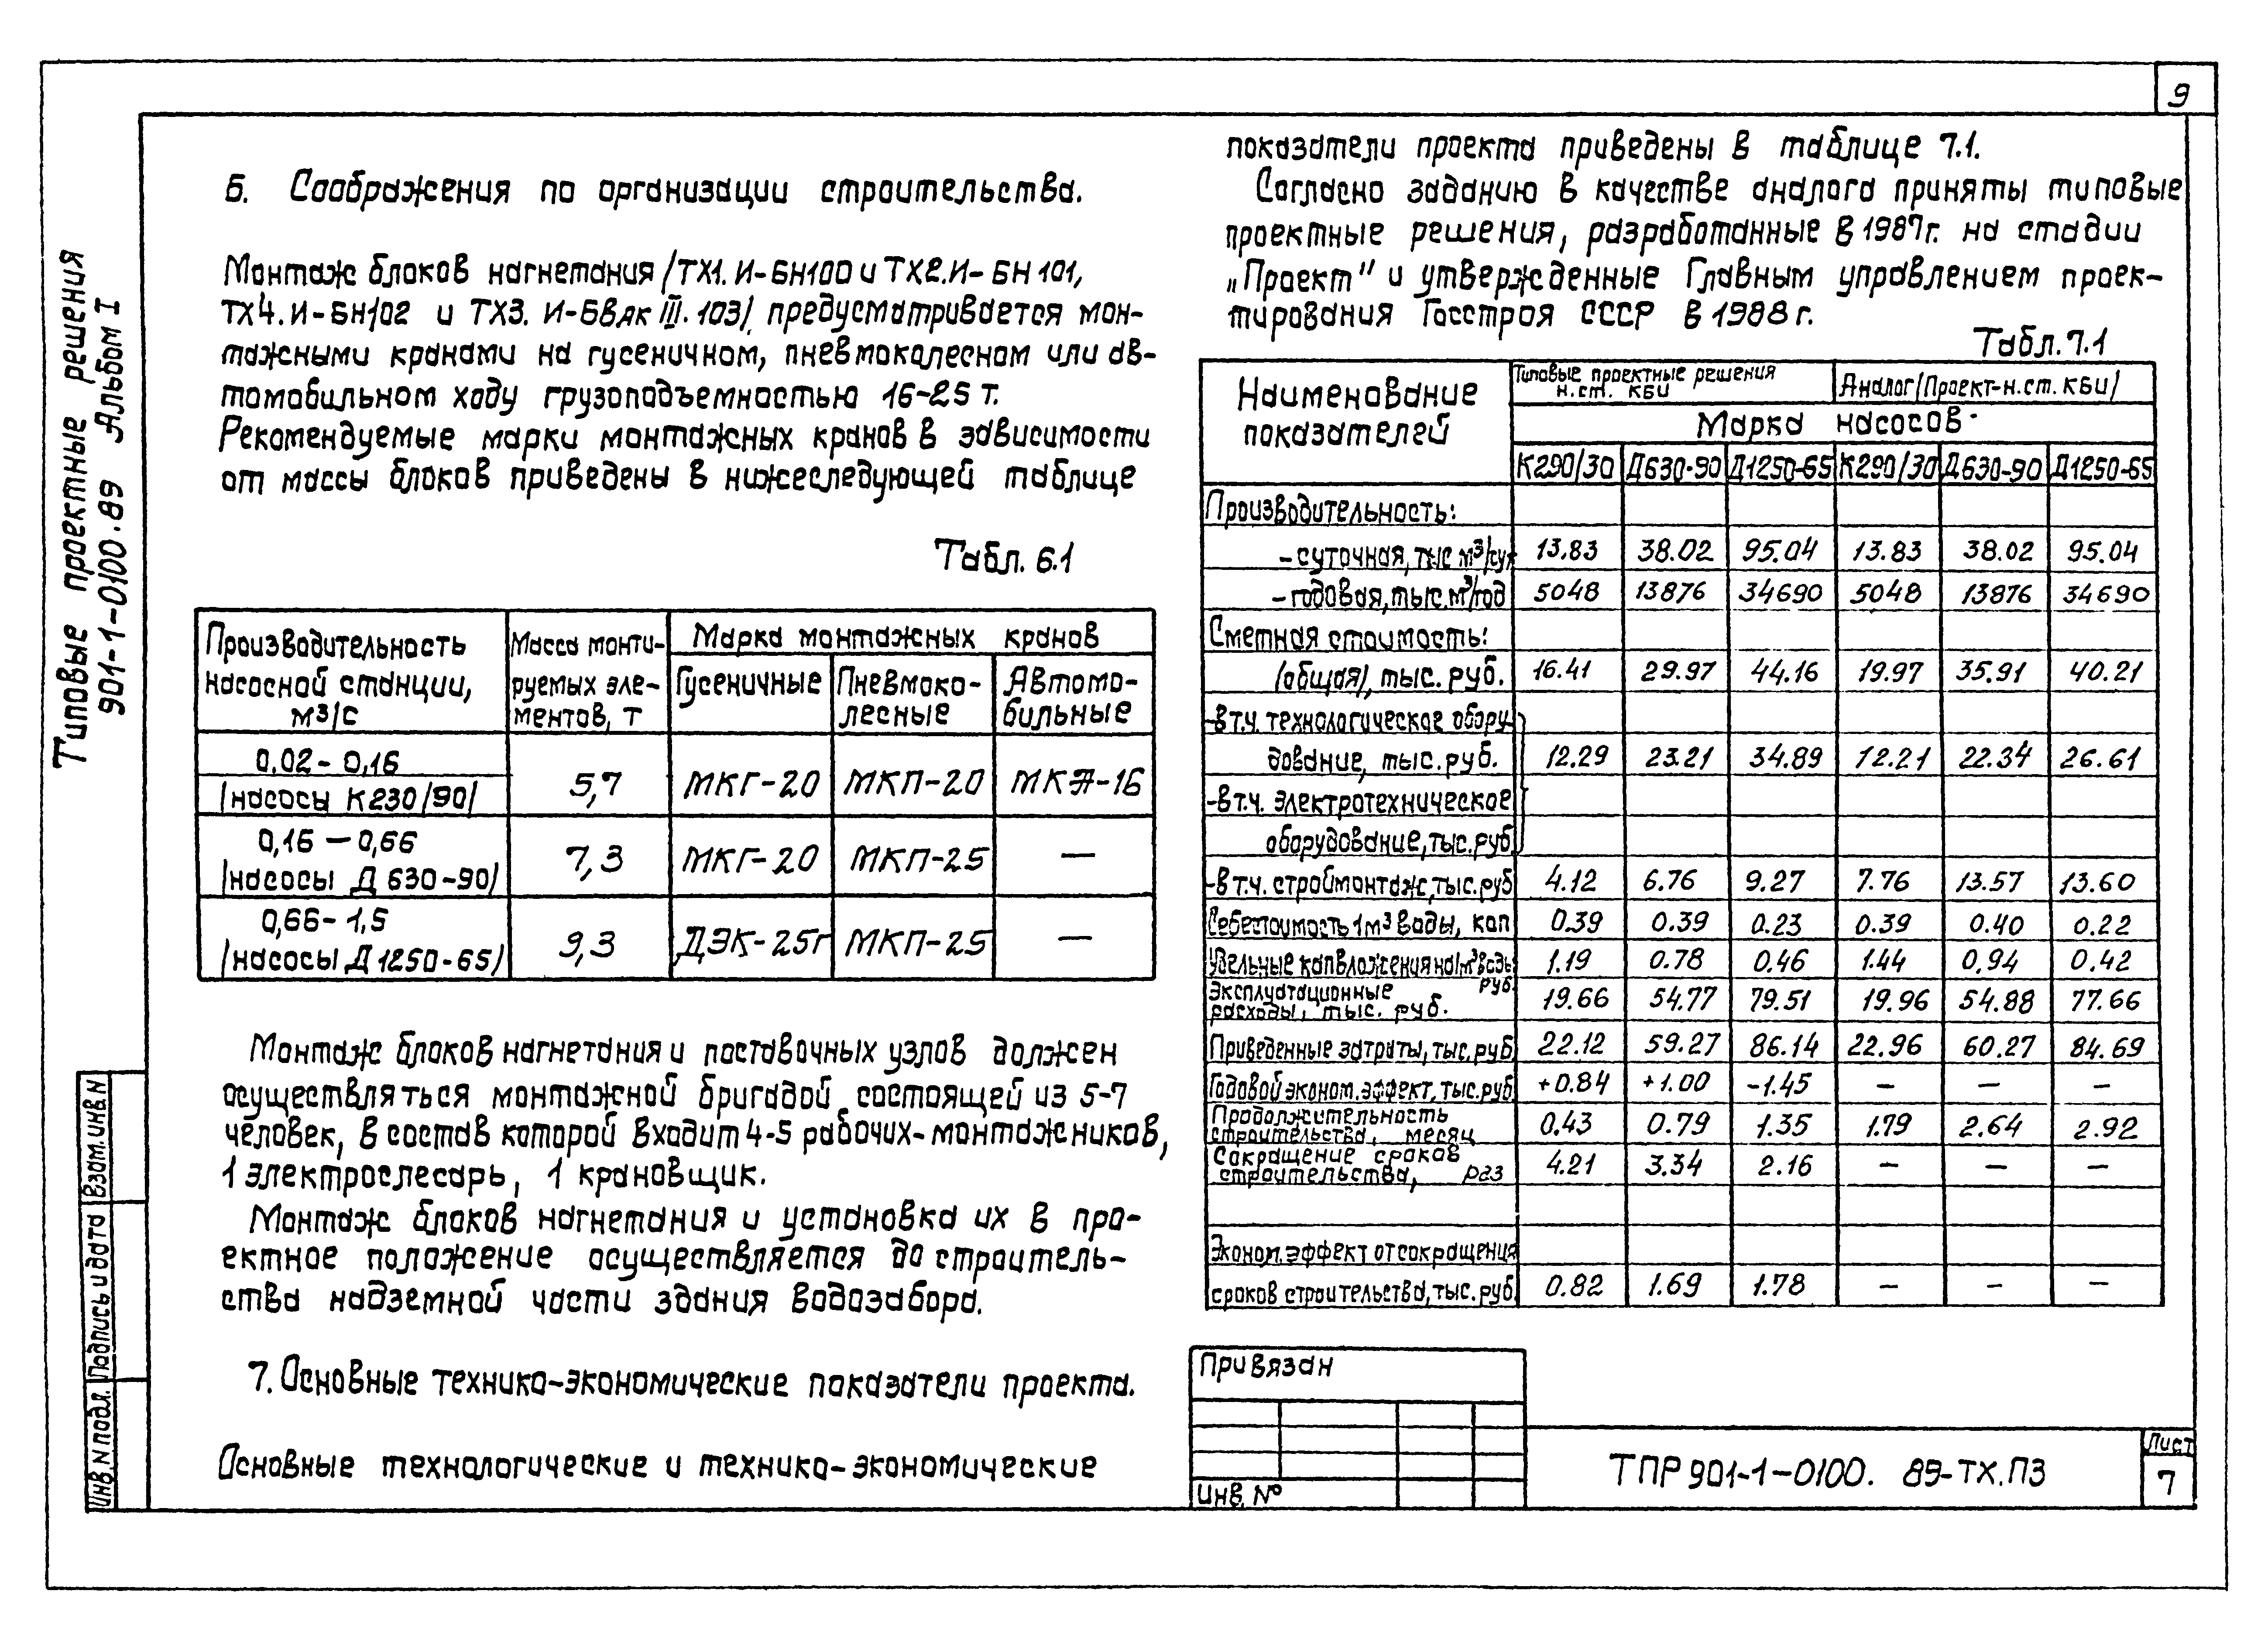 9
Типовые проектные решения
901-1-0100.89 Альбом I
6. Соображения по организации строительства.
Монтаж блоков нагнетания /ТХ1.И-БН100 и ТХ2.И-БН101,
ТХ4.И-БН102 и ТХ3.И-БВак III.103/ предусматривается мон-
тажными кранами на гусеничном, пневмоколесном или ав-
томобильном ходу грузоподъемностью 16-25 т.
Рекомендуемые марки монтажных кранов в зависимости
от массы блоков приведены в нижеследующей таблице
Табл. 6.1
Производительность насосной станции, м³/с | Масса монти-руемых эле-ментов, т | Марка монтажных кранов
Гусеничные | Пневмоко-лесные | Автомо-бильные
0,02-0,16 /насосы К230/90/ | 5,7 | МКГ-20 | МКП-20 | МКА-16
0,16-0,66 /насосы Д 630-90/ | 7,3 | МКГ-20 | МКП-25 | —
0,66-1,5 /насосы Д 1250-65/ | 9,3 | ДЭК-25г | МКП-25 | —
Монтаж блоков нагнетания и поставочных узлов должен
осуществляться монтажной бригадой, состоящей из 5-7
человек, в состав которой входит 4-5 рабочих-монтажников,
1 электрослесарь, 1 крановщик.
Монтаж блоков нагнетания и установка их в про-
ектное положение осуществляется до строитель-
ства надземной части здания водозабора.
7. Основные технико-экономические показатели проекта.
Основные технологические и технико-экономические
показатели проекта приведены в таблице 7.1.
Согласно заданию в качестве аналога приняты типовые
проектные решения, разработанные в 1987г. на стадии
„Проект" и утвержденные Главным управлением проек-
тирования Госстроя СССР в 1988 г.
Табл. 7.1
Наименование показателей | Типовые проектные решения н.ст. КБИ | Аналог/Проект-н.ст. КБИ/
Марка насосов
К290/30 | Д630-90 | Д1250-65 | К290/30 | Д630-90 | Д1250-65
Производительность:
-суточная, тыс м³/сут | 13.83 | 38.02 | 95.04 | 13.83 | 38.02 | 95.04
-годовая, тыс. м³/год | 5048 | 13876 | 34690 | 5048 | 13876 | 34690
Сметная стоимость:
(общая), тыс. руб. | 16.41 | 29.97 | 44.16 | 19.97 | 35.91 | 40.21
-в т.ч. технологическое обору-
дование, тыс. руб. | 12.29 | 23.21 | 34.89 | 12.21 | 22.34 | 26.61
-в т.ч. электротехническое
оборудование, тыс. руб.
-в т.ч. строймонтаж, тыс. руб | 4.12 | 6.76 | 9.27 | 7.76 | 13.57 | 13.60
Себестоимость 1м³ воды, коп | 0.39 | 0.39 | 0.23 | 0.39 | 0.40 | 0.22
Удельные капвложения на 1м³ воды руб. | 1.19 | 0.78 | 0.46 | 1.44 | 0.94 | 0.42
Эксплуатационные расходы, тыс. руб. | 19.66 | 54.77 | 79.51 | 19.96 | 54.88 | 77.66
Приведенные затраты, тыс. руб | 22.12 | 59.27 | 86.14 | 22.96 | 60.27 | 84.69
Годовой эконом. эффект, тыс. руб. | +0.84 | +1.00 | -1.45 | — | — | —
Продолжительность строительства, месяц | 0.43 | 0.79 | 1.35 | 1.79 | 2.64 | 2.92
Сокращение сроков строительства, раз | 4.21 | 3.34 | 2.16 | — | — | —
Эконом. эффект от сокращения
сроков строительства, тыс. руб. | 0.82 | 1.69 | 1.78 | — | — | —
Привязан
Инв. №
ТПР 901-1-0100. 89-ТХ.ПЗ
Лист
7
Взам. инв. N
Подпись и дата
Инв. N подл.